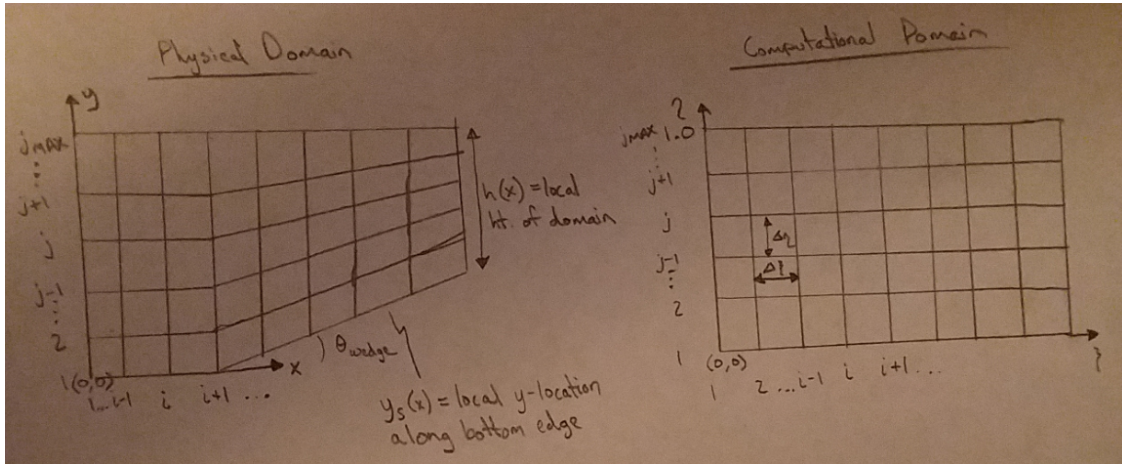 Physical Domain
y
jMAX
⋮
j+1
j
j-1
⋮
2
1 (0,0)
1...i-1 i i+1 ...
x
θwedge
h(x) = local
ht. of domain
ys(x) = local y-location
along bottom edge
Computational Domain
η
jMAX 1.0
⋮
j+1
j
j-1
⋮
2
1
(0,0)
1 2 ...i-1 i i+1 ...
Δη
Δξ
ξ